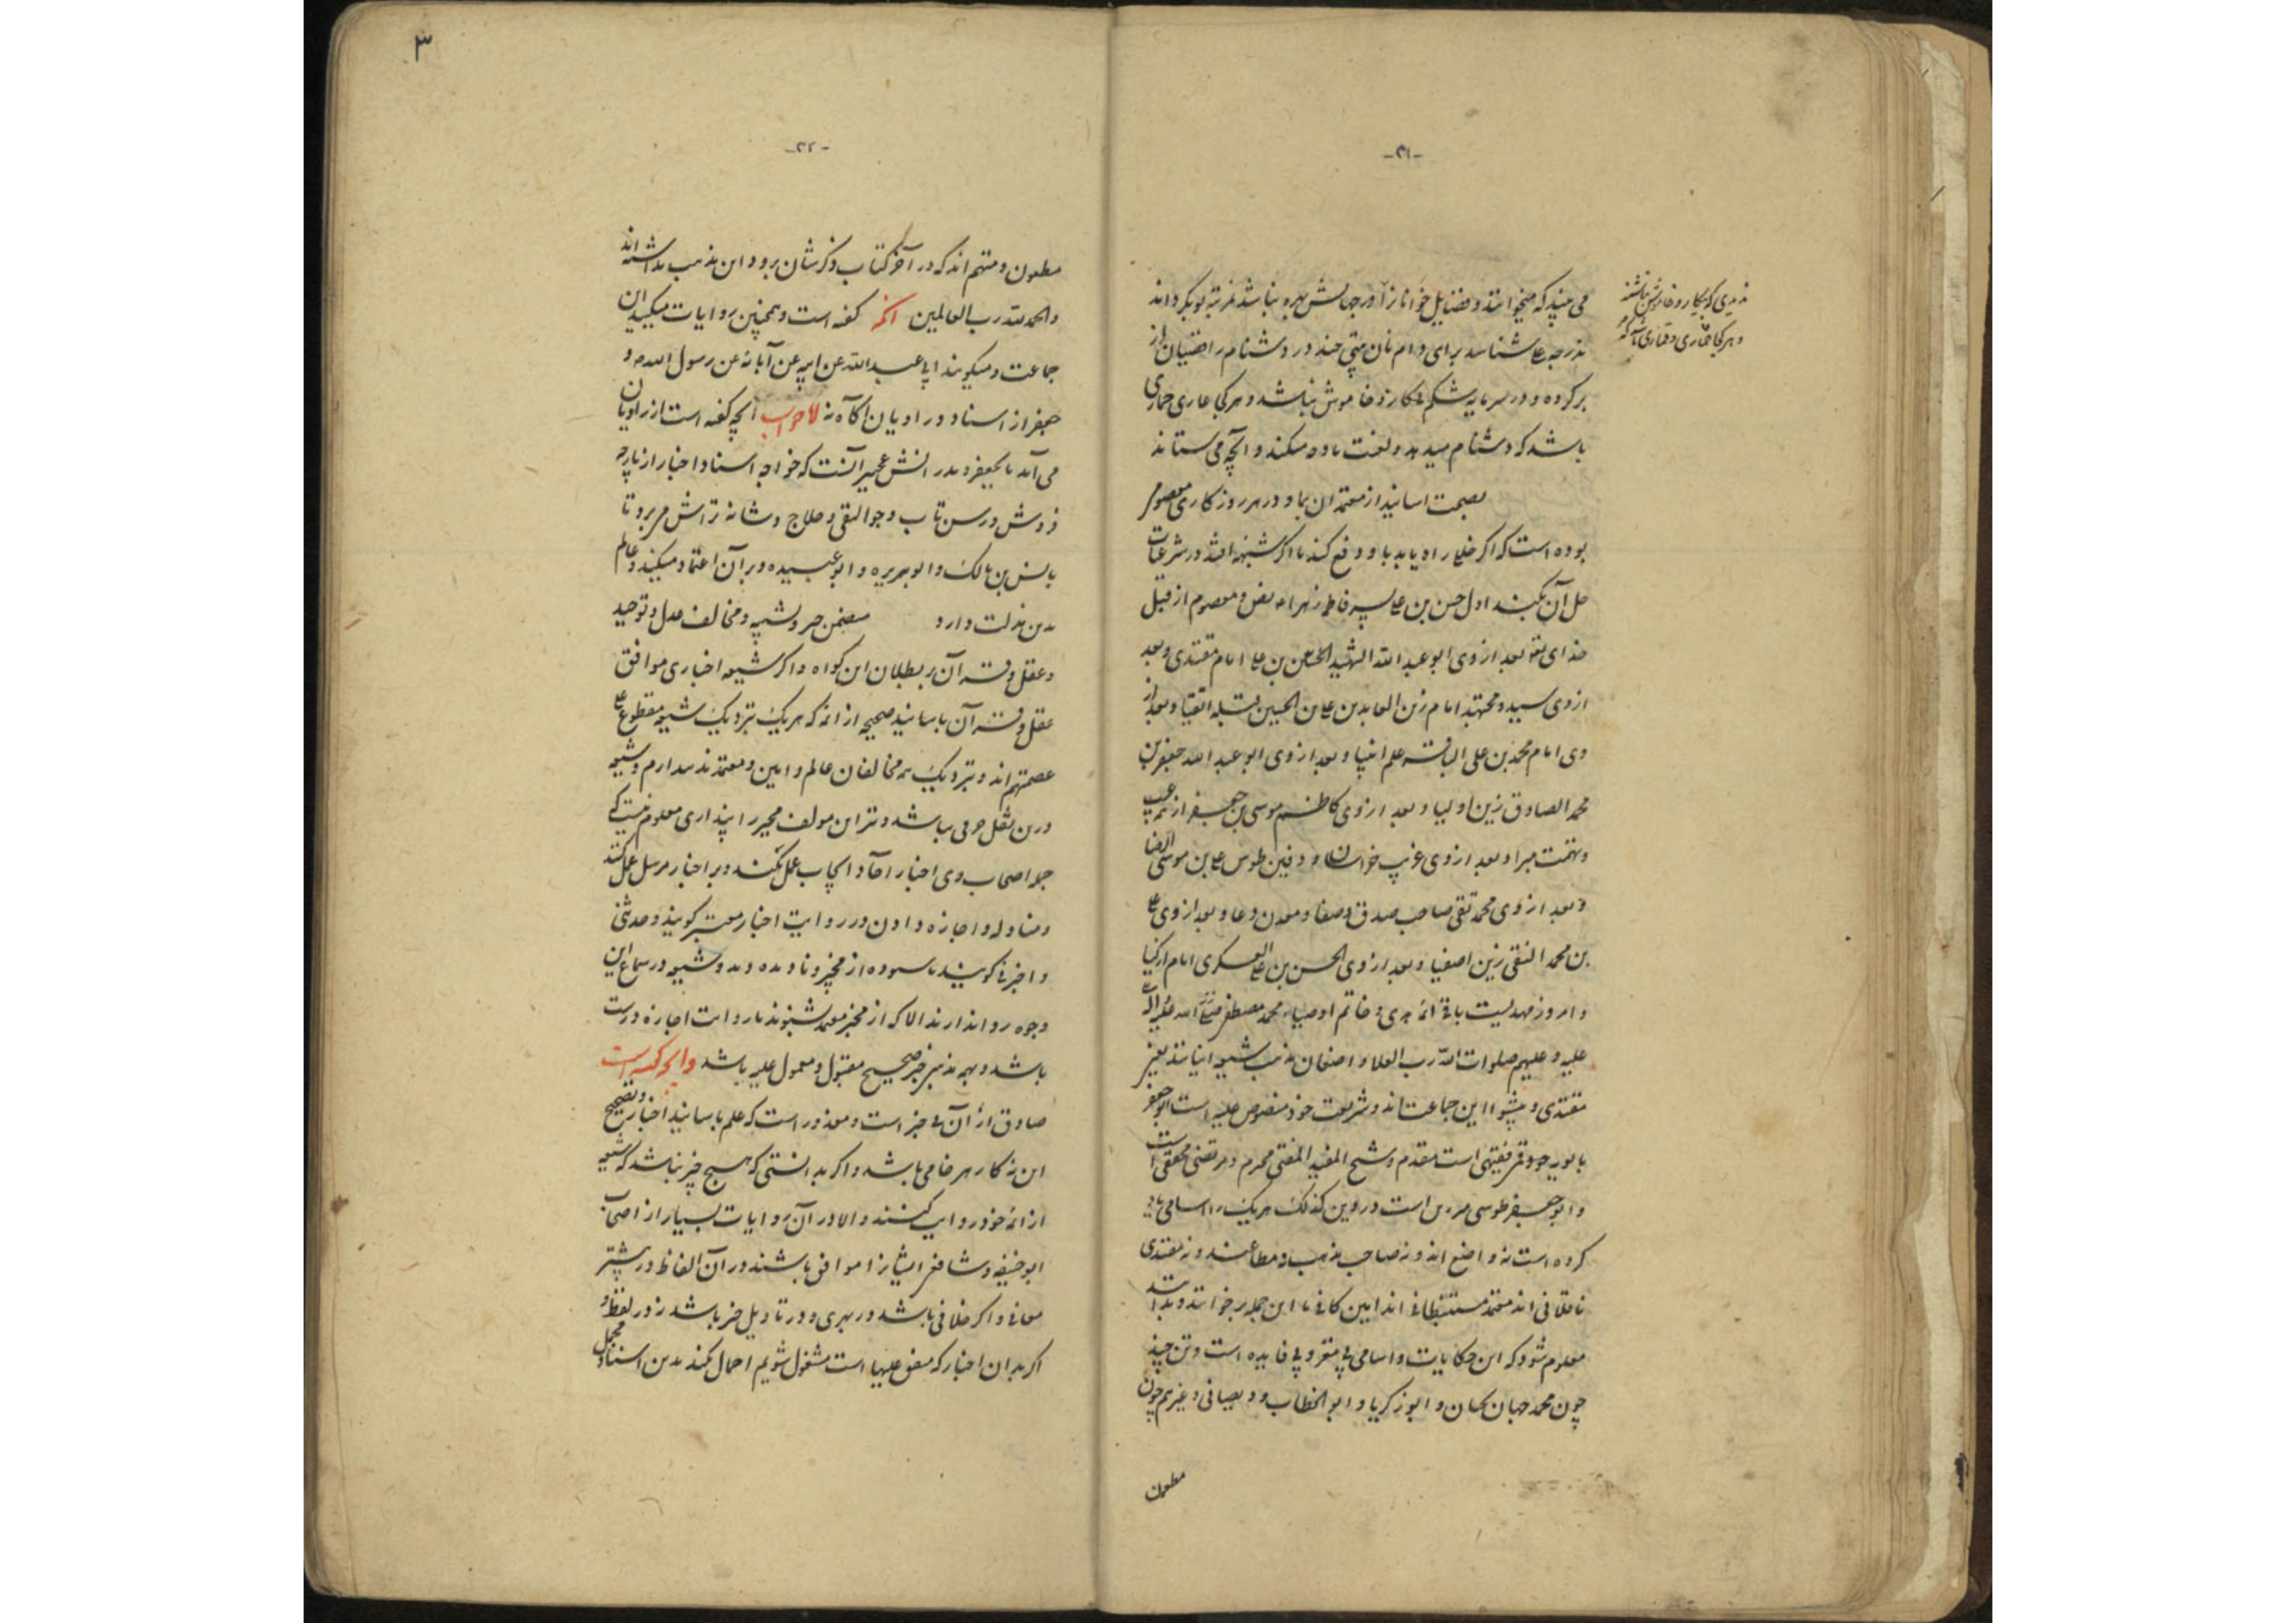 -۲۱-
می بیند که میخوانند و فضایل خوانان را درجهانش بهره نباشد نمرتبه بوبکر داند
بدرجه علی شناسد برای دام نان بیتی چند در دشنام رافضیان از
بر کرده و در سرمایه شکم بی کار و خاموش نباشد و هر کجا عاری خماری
باشد که دشنام میدهد و لعنت ماده میکند و آنچه می ستاند
بصحت اسانید از معتمدان بما و در هر روزکاری معصوم
بوده است که اگر خللی راه یابد باو دفع کند تا اگر شبهه افتد در شرعیات
حل آن بکند اول حسن بن علی پسر فاطمه زهراء بنص و معصوم از قبل
خدای تعا بعد از وی ابو عبد الله الشهید الحسین بن علی امام مقتدی و بعد
از وی سید و مجتهد امام زین العابدین علی بن الحسین قبله اتقیا و بعد از
وی امام محمد بن علی الباقر علم انبیا و بعد از وی ابو عبد الله جعفر بن
محمد الصادق زین اولیا و بعد از وی کاظم موسی بن جعفر از همه عیب
و تهمت مبرا و بعد از وی غریب خراسان و دفین طوس علی بن موسی الرضا
و بعد از وی محمد تقی صاحب صدق و صفا و معدن دعا و بعد از وی علی
بن محمد النقی زین اصفیا و بعد از وی الحسن بن علی العسکری امام ازکیا
و امروز مهدیست باقی ائمه هدی و خاتم اوصیاء محمد مصطفی صلی الله علیه و آله
علیه و علیهم صلوات الله رب العلا و اصفان مذهب شیعه اینانند بغیر
مقتدی و پیشوا این جماعت اند و شریعت خود منصوص علیه است ابو جعفر
بابویه جو قمی فقیهی است مقدم و شیخ المفید المفتی محرم و مرتضی محققی است
و ابو جعفر طوسی مدرس است در دین کذلک هر یک را اسامی یاد
کرده است نه واضع اند و نه صاحب مذهب و مطاعند و نه مقتدی
ناقلانی اند معتمد مستنبطانی اند امین کافی تا این جمله برخوانند و بداند
معلوم شود که این حکایات و اسامی بی مغز و بی فایده است و تن چند
چون محمد حبان بکمان و ابو زکریا و ابو الخطاب و دیصانی و غیر هم چون
مطعون
ندیدی که بیکار و خاموش باشند
و هر کجا خماری و قماری باشد که
-۲۲-
۳
مطعون و متهم اند که در آخر کتاب ذکرشان برود این مذهب نداشته اند
والحمد لله رب العالمین آنکه گفته است و همچنین روایات میکنند این
جماعت و میگویند ابی عبد الله عن ابیه عن آبائه عن رسول الله ص و
جعفر از اسناد و راویان آگاه نه اما جواب آنچه گفته است از راویان
می آید تا بجعفر و بدر انش عجیر آنست که خواجه اسناد اخبار از پارچه
فروش و رسن تاب و جوالقی و حلاج و شانه تراش می برد تا
بانس بن مالک و ابو هریره و ابو عبیده و بر آن اعتماد میکنند و عالم
بدین مذلت دارد متضمن جبر و تشبیه و مخالف عدل و توحید
و عقل و قرآن بر بطلان این گواه و اگر شیعه اخباری موافق
عقل و قرآن باسانید صحیحه از ائمه که هر یک بنزدیک شیعه مقطوع علی
عصمتهم اند و بنزدیک همه مخالفان عالم و امین و معتمد ند سدارم و شیعه
درین نقل حرفی نباشد و نتر این مولف مجبر را پنداری معلوم نیست که
جو اصحاب وی اخبار آحاد ایجاب عمل نکند و بر اخبار مرسل عمل کنند
و مناوله و اجازه دادن در روایت اخبار معتبر گویند و حدثنی
و اخبرنی گویند ناسموده از مخبر و نادیده وید و شیعه در سماع این
وجوه روا ندارند الا که از مخبر معتمد شنوند تا روایت اجازه درست
باشد و بهمه مذهب خبر صحیح مقبول و معمول علیه باشد و آنچه گفته است
صادق از آن بی خبر است و معذور است که علم باسانید اخبار و تصحیح
این نه کار هر خامی باشد و اگر بدانستی که هیچ خبر نباشد که شیعه
از ائمه خود روایت کنند و الا در آن روایات بسیار از اصحاب
ابو حنیفه و شافعی ایشان را موافق باشند در آن الفاظ و در بیشتر
معانی و اگر خلافی باشد در بهری و در تاویل خبر باشد نه در لفظ و
اگر بدان اخبار که متفق علیها است مشغول شویم احمال نکند بدین اسناد مجمل